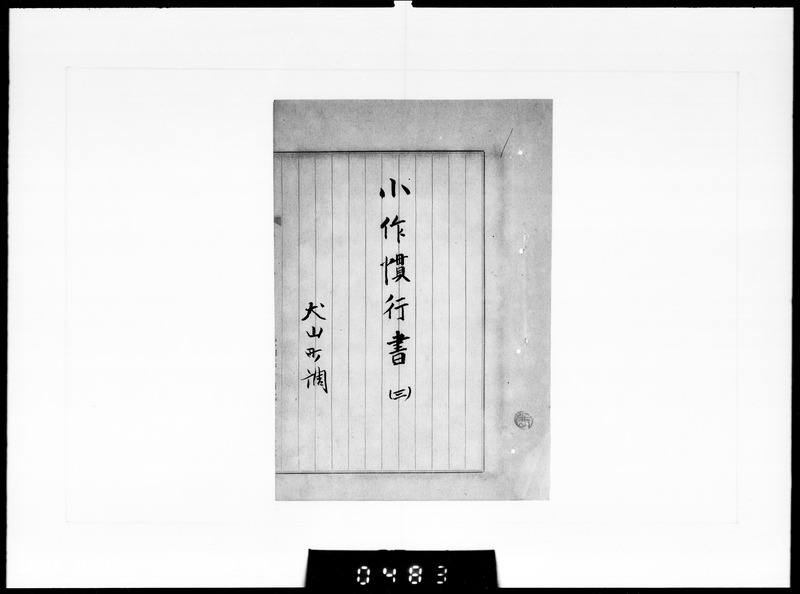 小作慣行書 (三)
犬山町調
0483